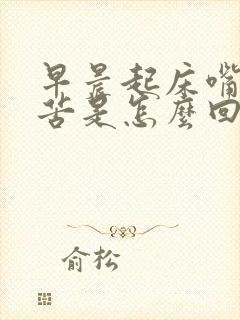 早晨起床嘴
苦是怎麼回
俞松